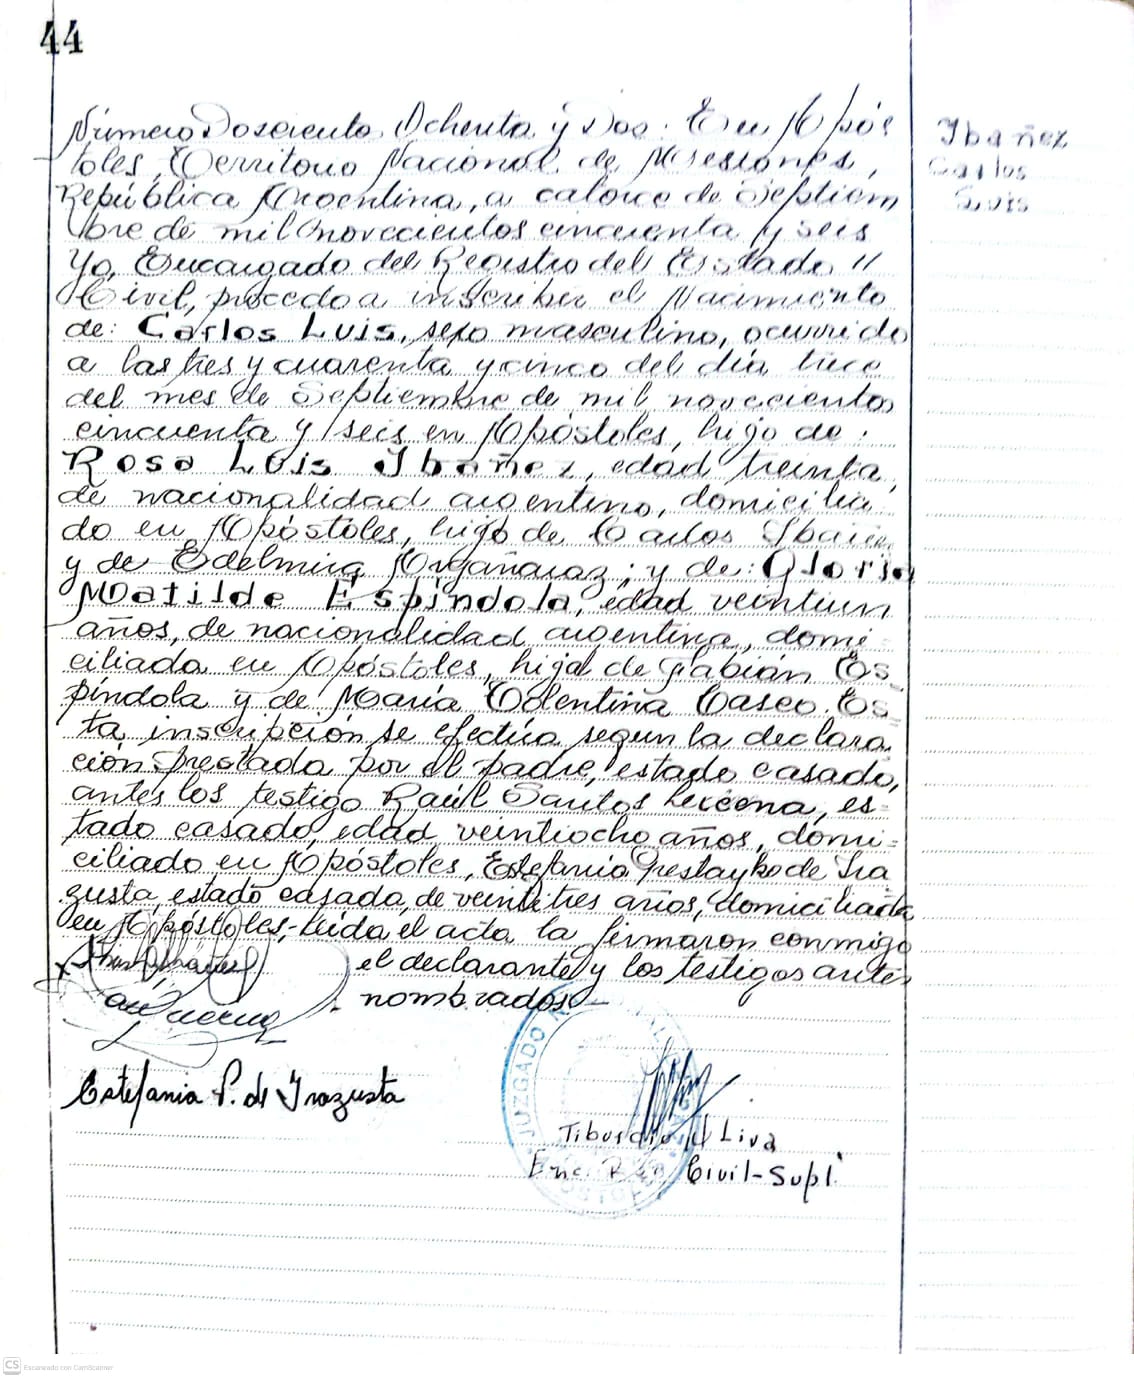 44
Número Doseiento Ochenta y Dos: En Após
toles, Territorio Nacional de Misiones,
República Argentina, a catorce de Septiem
bre de mil novecientos cincuenta y seis
Yo, Encargado del Registro del Estado "
Civil, procedo a inscribir el Nacimiento
de: Carlos Luis, sexo masculino, ocurrido
a las tres y cuarenta y cinco del día trece
del mes de Septiembre de mil novecientos
cincuenta y seis en Apóstoles, higo de:
Rosa Luis Ibañez, edad treinta,
de nacionalidad argentino, domicilia
do en Apóstoles, higo de Carlos Ibañez
y de Edelmira Argañaraz; y de: Gloria
Matilde Espíndola, edad veintiun
años, de nacionalidad argentina, domi=
ciliada en Apóstoles, hija de Fabián Es
píndola y de María Tolentina Caseo. Es
ta inscripción se efectúa segun la declara
ción prestada por el padre, estado casado,
antes los testigo Raúl Santos Lucena, es=
tado casado, edad veintiocho años, domi=
ciliado en Apóstoles, Estefania Prestayko de Ira
zusta, estado casada, de veintitres años, domiciliada
en Apóstoles,- Leída el acta la firmaron conmigo
el declarante y los testigos antes
nombrados.
Estefania P. de Irazusta
JUZGADO
Tiburcio Liva
Enc. Reg. Civil-Supl.
Ibañez
Carlos
Luis
CS Escaneado con CamScanner